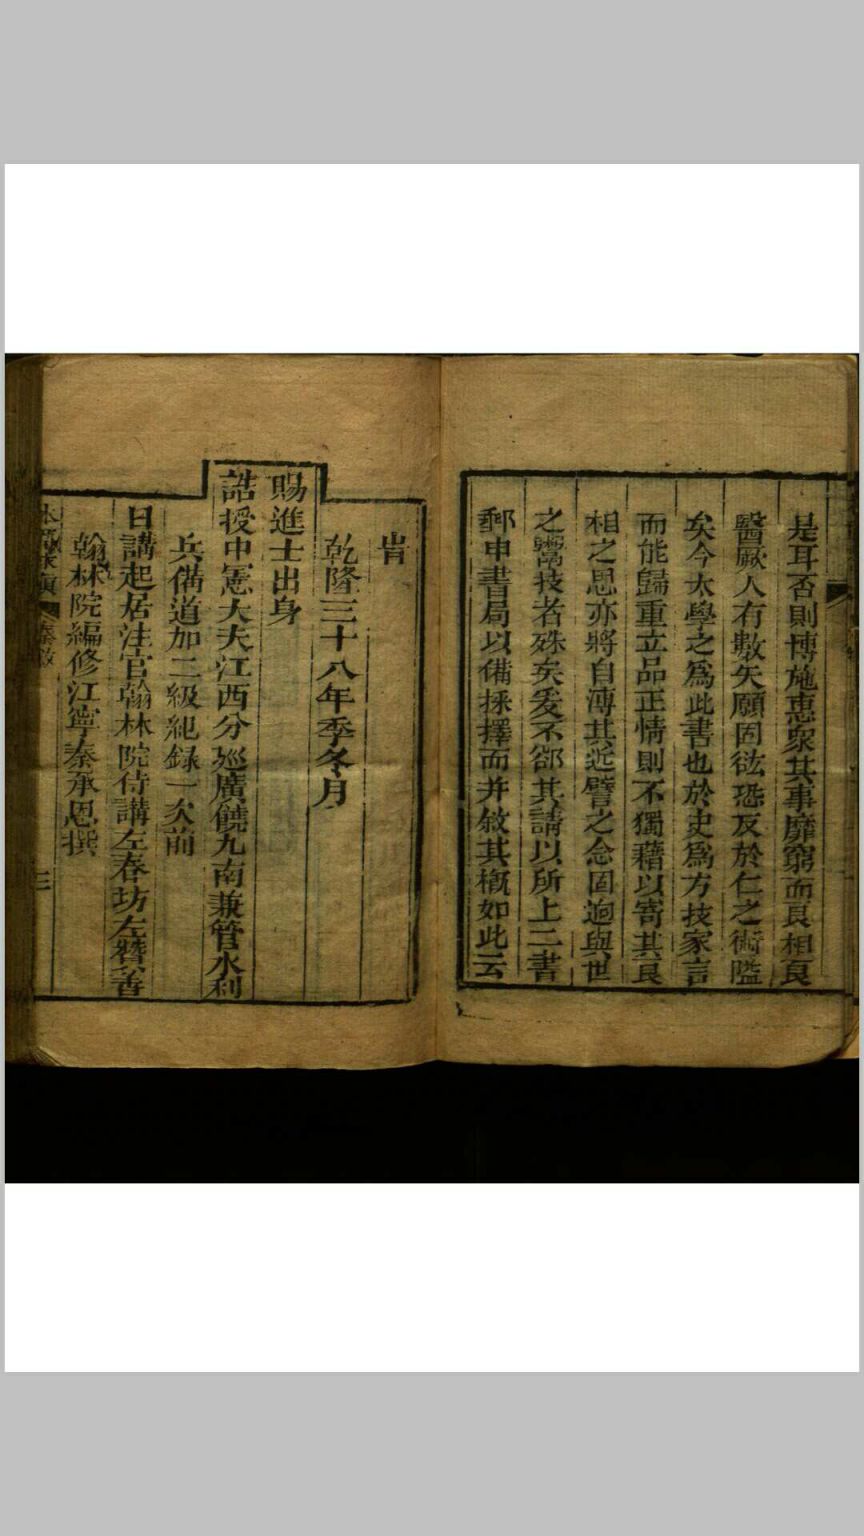 是耳否則博施惠衆其事靡窮而良相良
醫厥人有數矣願固竑恐友於仁之術隘
矣今太學之爲此書也於史爲方技家言
而能歸重立品正情則不獨藉以寄其良
相之思亦將自溥其近譬之念固逈與世
之鬻技者殊矣爰不郤其請以所上二書
郵申書局以備採擇而并敘其槪如此云
旹
乾隆三十八年季冬月
賜進士出身
誥授中憲大夫江西分廵廣饒九南兼管水利
兵備道加二級紀錄一次前
日講起居注官翰林院侍講左春坊左贊善
翰林院編修江寧秦承恩撰
三